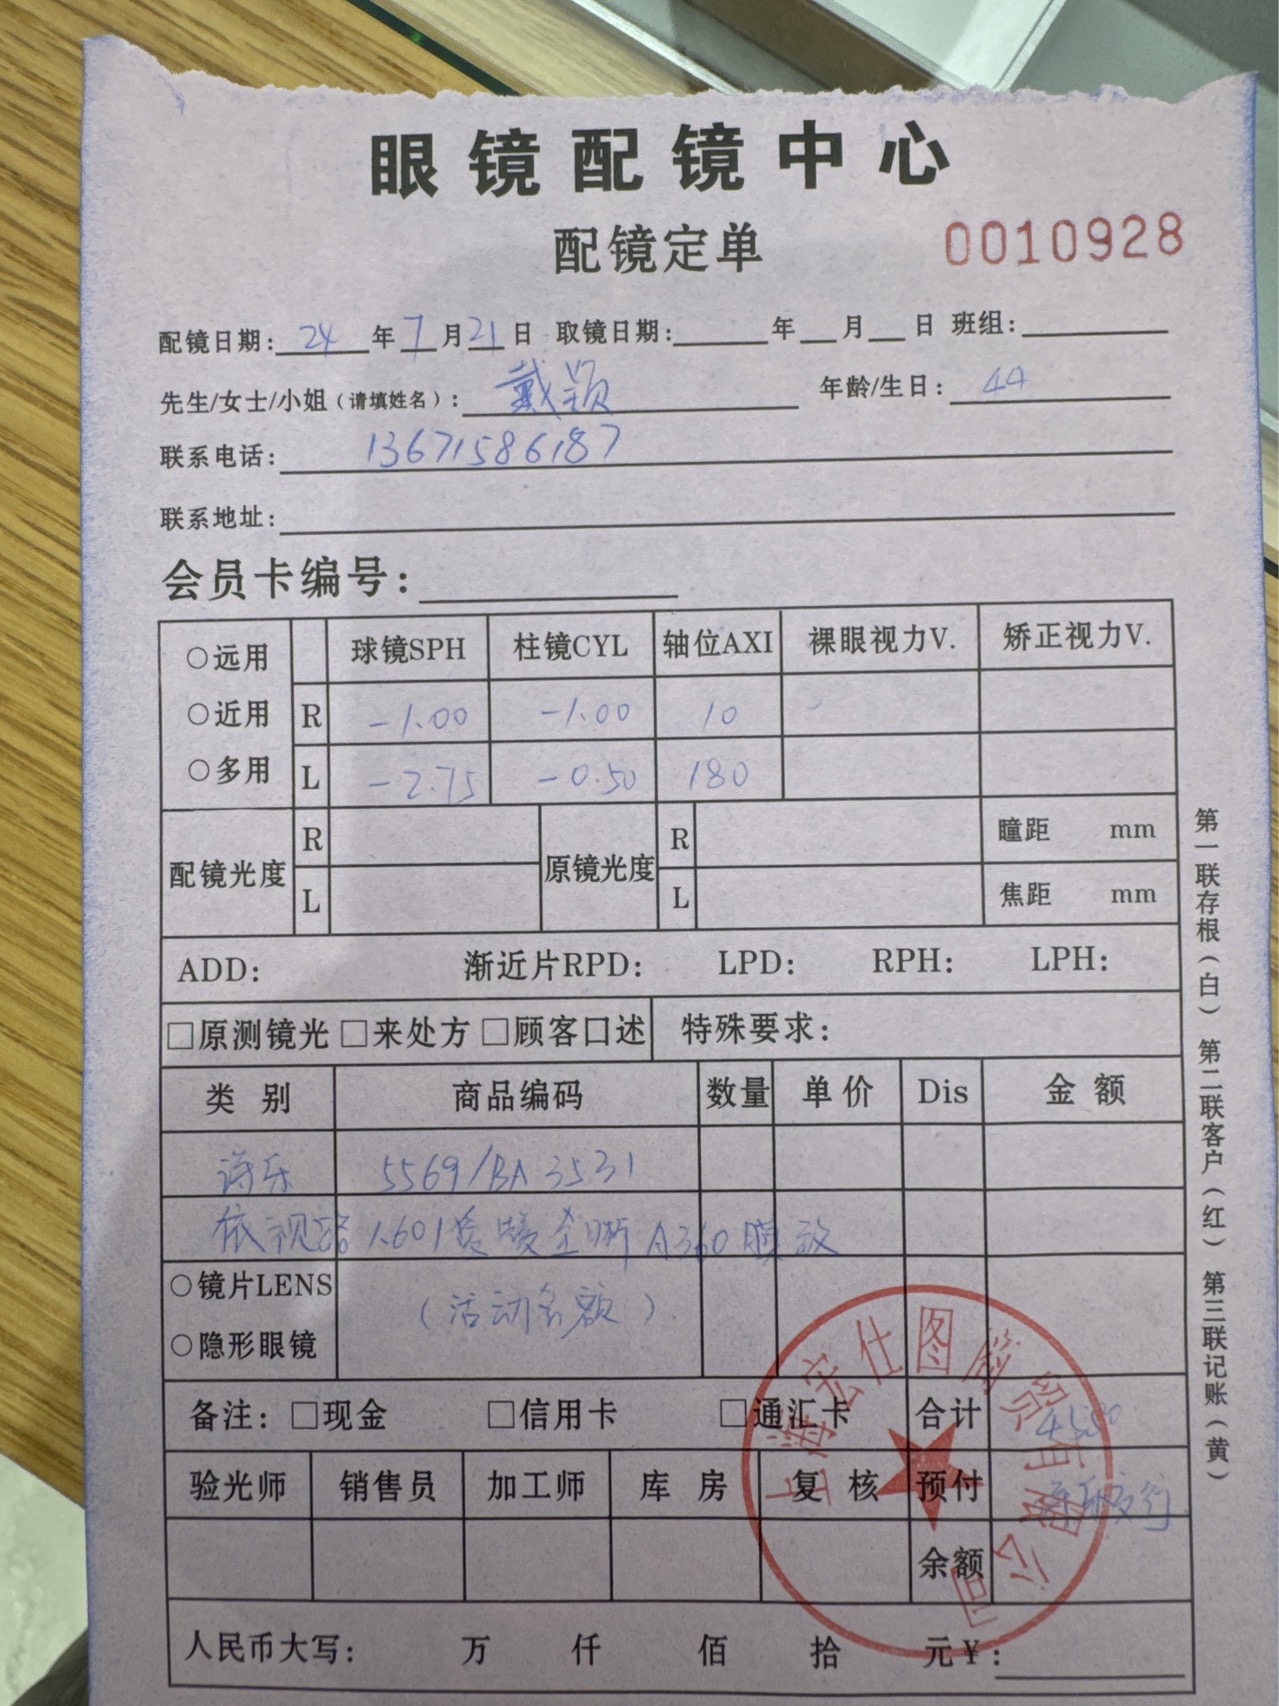 眼镜配镜中心
配镜定单 0010928
配镜日期: 24 年 7 月 21 日 取镜日期: 年 月 日 班组:
先生/女士/小姐(请填姓名): 戴颖 年龄/生日: 44
联系电话: 13671586187
联系地址:
会员卡编号:
○远用 球镜SPH 柱镜CYL 轴位AXI 裸眼视力V. 矫正视力V.
○近用 R -1.00 -1.00 10
○多用 L -2.75 -0.50 180
配镜光度 R 原镜光度 R 瞳距 mm
L L 焦距 mm
ADD: 渐近片RPD: LPD: RPH: LPH:
□原测镜光 □来处方 □顾客口述 特殊要求:
类别 商品编码 数量 单价 Dis 金额
诗乐 5569/BA3531
依视路 1.601 全晰 A360 膜
○镜片LENS (活动名额)
○隐形眼镜
备注: □现金 □信用卡 □通汇卡 合计
验光师 销售员 加工师 库房 复核 预付
余额
人民币大写: 万 仟 佰 拾 元¥:
第一联存根(白) 第二联客户(红) 第三联记账(黄)
上海宏仕图 贸有限公司